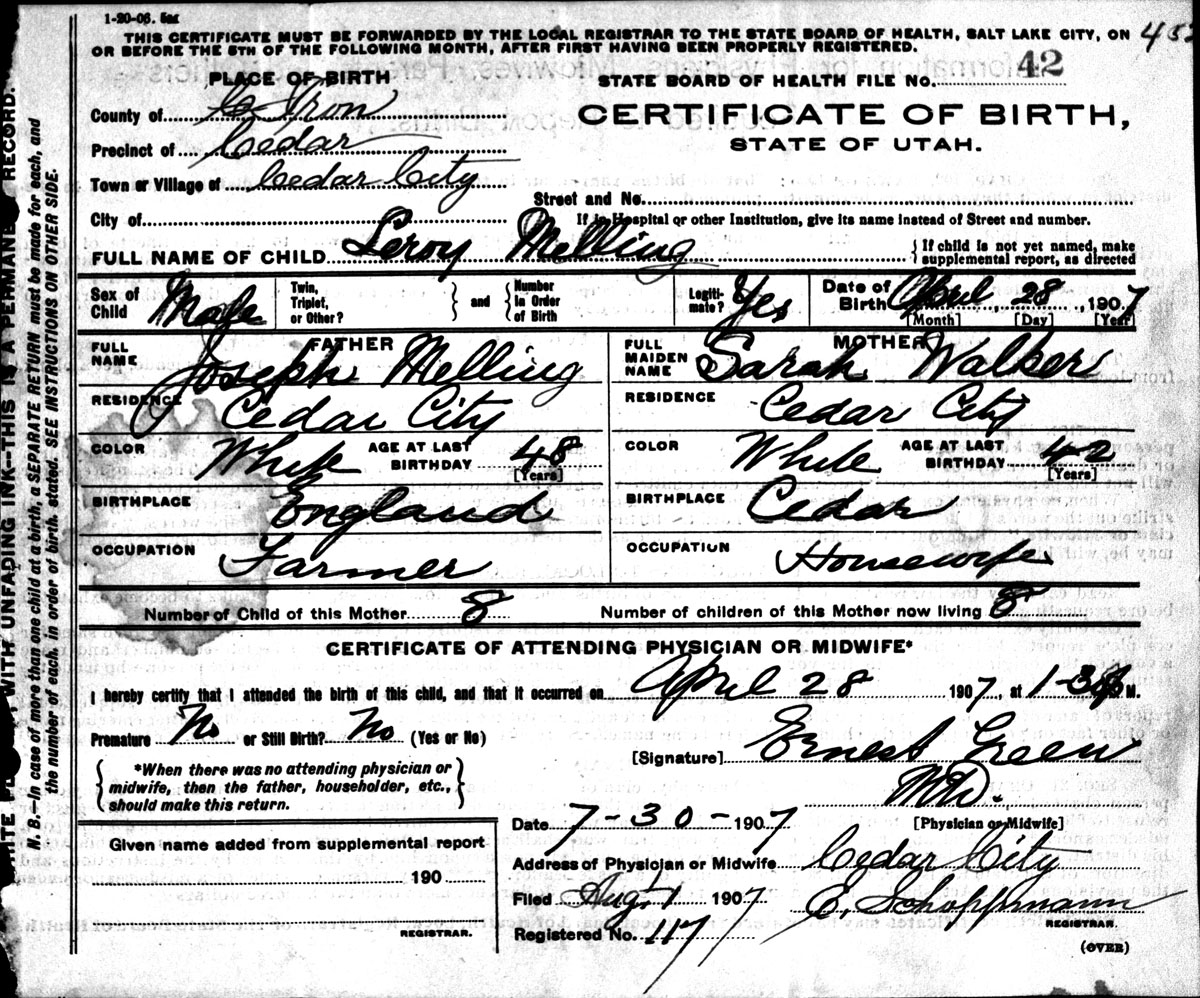 1-20-06. 5m
THIS CERTIFICATE MUST BE FORWARDED BY THE LOCAL REGISTRAR TO THE STATE BOARD OF HEALTH, SALT LAKE CITY, ON
OR BEFORE THE 5TH OF THE FOLLOWING MONTH, AFTER FIRST HAVING BEEN PROPERLY REGISTERED.
PLACE OF BIRTH
STATE BOARD OF HEALTH FILE NO. 42
County of Iron
CERTIFICATE OF BIRTH,
Precinct of Cedar
STATE OF UTAH.
Town or Village of Cedar City
Street and No.
City of
If in Hospital or other Institution, give its name instead of Street and number.
FULL NAME OF CHILD Leroy Melling
{ If child is not yet named, make
supplemental report, as directed
Sex of Child Male
Twin, Triplet, or Other? } and { Number In Order of Birth
Legiti-mate? Yes
Date of Birth April 28, 1907
[Month] [Day] [Year]
FATHER
FULL NAME Joseph Melling
RESIDENCE Cedar City
COLOR White AGE AT LAST BIRTHDAY 48
[Years]
BIRTHPLACE England
OCCUPATION Farmer
MOTHER
FULL MAIDEN NAME Sarah Walker
RESIDENCE Cedar City
COLOR White AGE AT LAST BIRTHDAY 42
[Years]
BIRTHPLACE Cedar
OCCUPATION Housewife
Number of Child of this Mother 8 Number of children of this Mother now living 8
CERTIFICATE OF ATTENDING PHYSICIAN OR MIDWIFE*
I hereby certify that I attended the birth of this child, and that it occurred on April 28 1907, at 1-30 M.
Premature No or Still Birth? No (Yes or No)
[Signature] Ernest Green
MD.
[Physician or Midwife]
{ *When there was no attending physician or
midwife, then the father, householder, etc.,
should make this return. }
Date 7-30-1907
Given name added from supplemental report
190
REGISTRAR.
Address of Physician or Midwife Cedar City
Filed Aug. 1 1907 E. Schoppmann
REGISTRAR.
Registered No. 117
(OVER)
WITH UNFADING INK—THIS IS A PERMANE RECORD.
N. B.—In case of more than one child at a birth, a SEPARATE RETURN must be made for each, and
the number of each, in order of birth, stated. SEE INSTRUCTIONS ON OTHER SIDE.